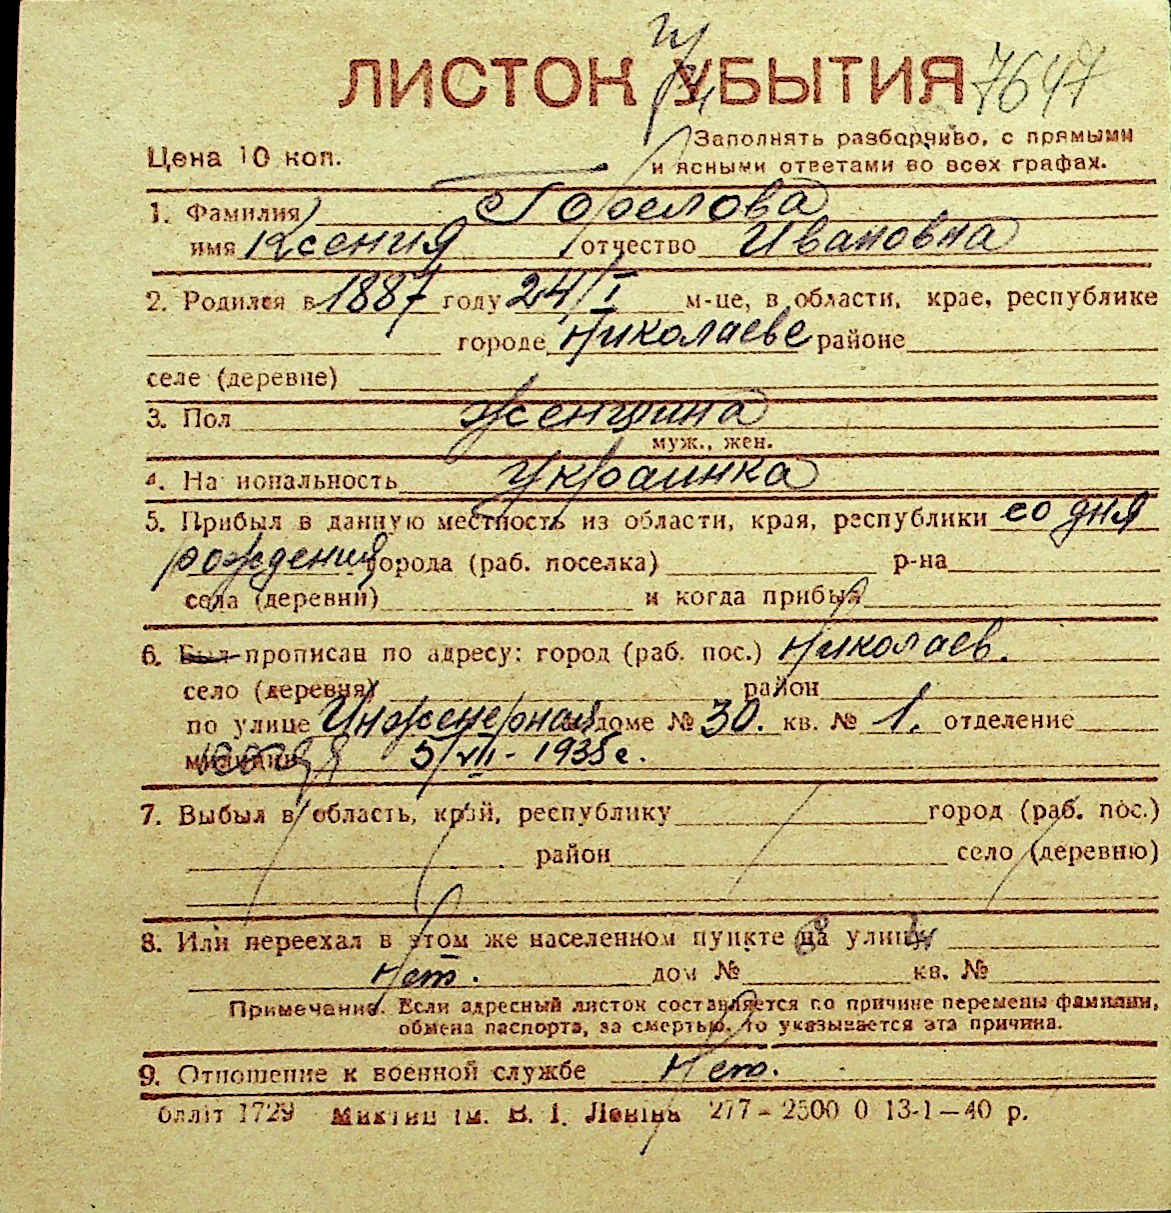 ЛИСТОК УБЫТИЯ 7647
Цена 10 коп.
Заполнять разборчиво, с прямыми
и ясными ответами во всех графах.
1. Фамилия Горелова
имя Ксения отчество Ивановна
2. Родился в 1887 году 24/I м-це, в области, крае, республике
городе Николаеве районе
селе (деревне)
3. Пол женщина
муж., жен.
4. На иональность украинка
5. Прибыл в данную местность из области, края, республики со дня
рождения города (раб. поселка) р-на
села (деревни) и когда прибыл
6. Был прописан по адресу: город (раб. пос.) Николаев.
село (деревня) район
по улице Инженерная доме № 30. кв. № 1. отделение
милиции 5/VII - 1935 г.
7. Выбыл в область, край, республику город (раб. пос.)
район село (деревню)
8. Или переехал в этом же населенном пункте на улицу
Нет. дом № кв. №
Примечание. Если адресный листок составляется по причине перемены фамилии,
обмена паспорта, за смертью, то указывается эта причина.
9. Отношение к военной службе Нет.
блліт 1729 Микіївц ім. В. І. Леніна 277 - 2500 0 13-1-40 р.